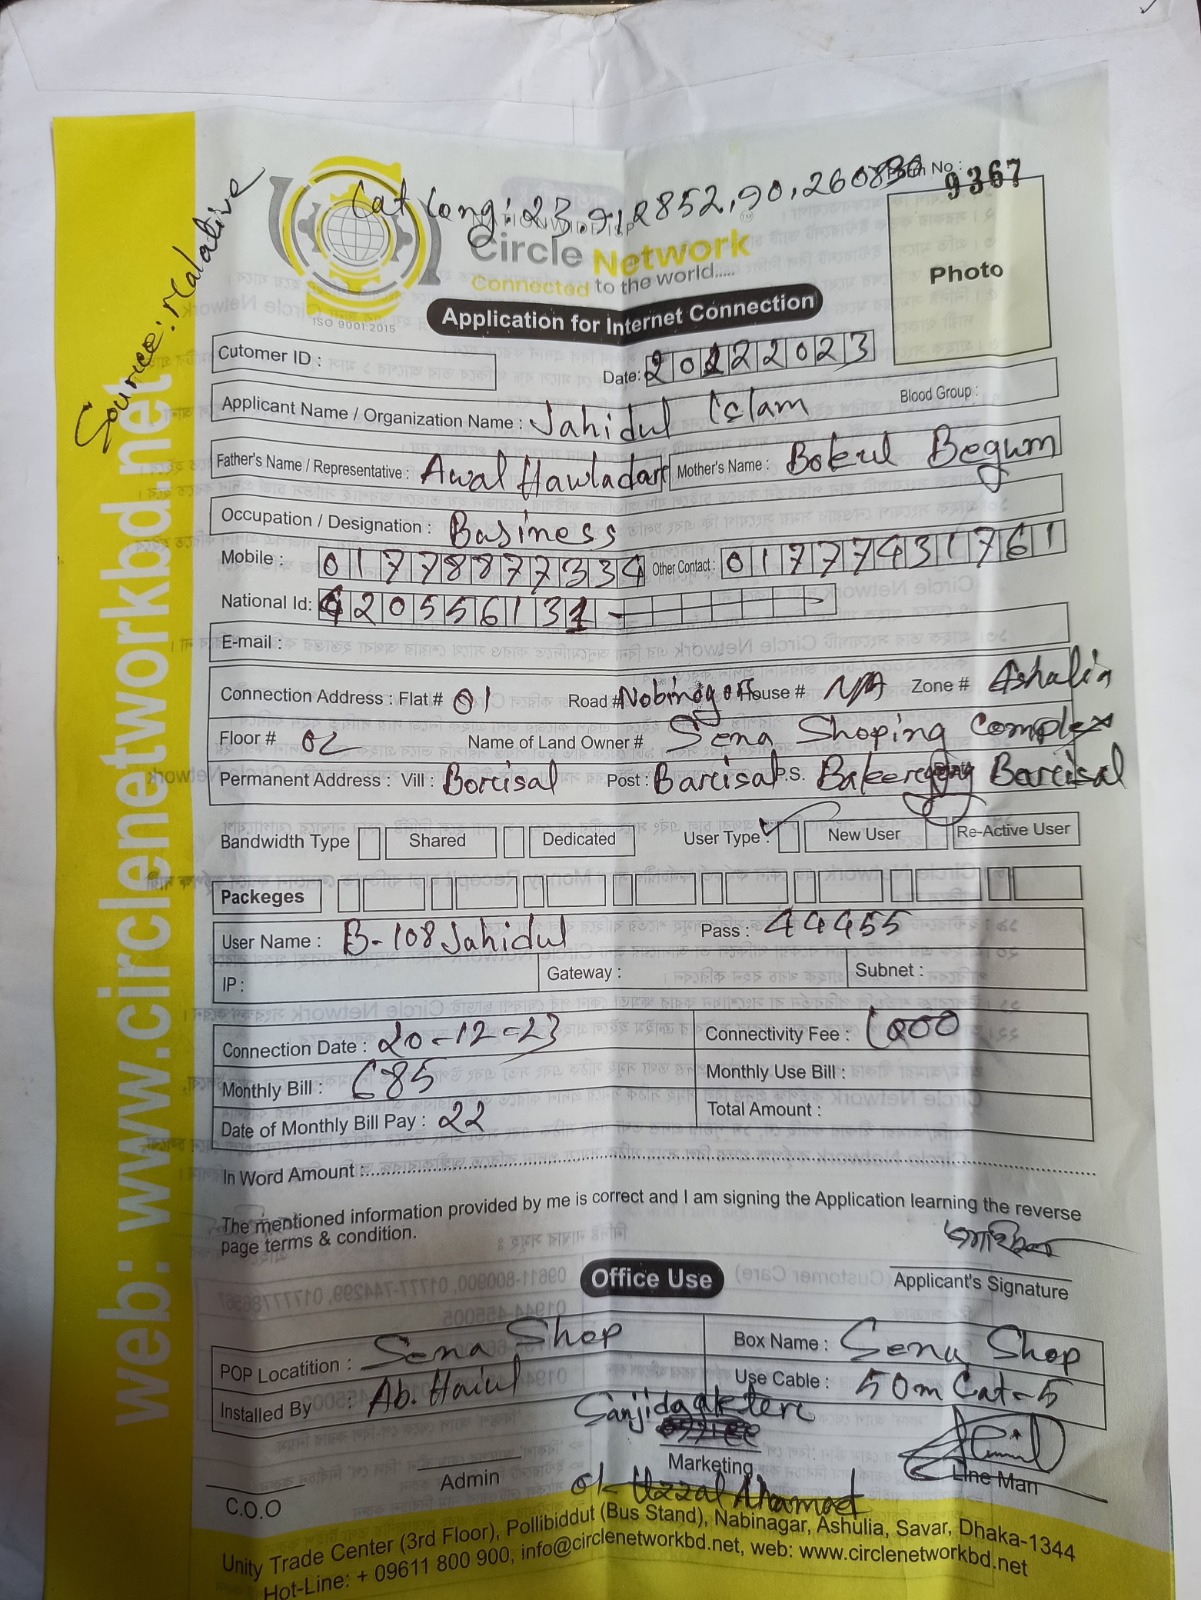 Form No : 9367
Lat Long: 23.912852, 90.260830
Source: realative
Circle Network
Connected to the world.....
ISO 9001:2015
Photo
Application for Internet Connection
Cutomer ID :
Date: 20122023
Applicant Name / Organization Name : Jahidul Islam Blood Group :
Father's Name / Representative : Awal Hawladar Mother's Name : Bokul Begum
Occupation / Designation : Business
Mobile : 01778877334 Other Contact : 01777431761
National Id: 420556131
E-mail :
Connection Address : Flat # 01 Road # Nobinogor House # N/A Zone # Ashulia
Floor # 02 Name of Land Owner # Sena Shoping Complex
Permanent Address : Vill : Borcisal Post : Barcisal P.S. Bakeregong Barcisal
Bandwidth Type Shared Dedicated User Type : ✓ New User Re-Active User
Packeges
User Name : B-108 Jahidul Pass : 44455
IP : Gateway : Subnet :
Connection Date : 20-12-23 Connectivity Fee : 1000
Monthly Bill : 685 Monthly Use Bill :
Date of Monthly Bill Pay : 22 Total Amount :
In Word Amount :
The mentioned information provided by me is correct and I am signing the Application learning the reverse
page terms & condition.
জাহিদুল
Applicant's Signature
Office Use
POP Locatition : Sena Shop Box Name : Sena Shop
Installed By : Ab. Haiul Use Cable : 50m Cat-5
Sanjida akter
C.O.O Admin Marketing Line Man
ok Uzzal Ahamed
Unity Trade Center (3rd Floor), Pollibiddut (Bus Stand), Nabinagar, Ashulia, Savar, Dhaka-1344
Hot-Line: + 09611 800 900, info@circlenetworkbd.net, web: www.circlenetworkbd.net
web: www.circlenetworkbd.net